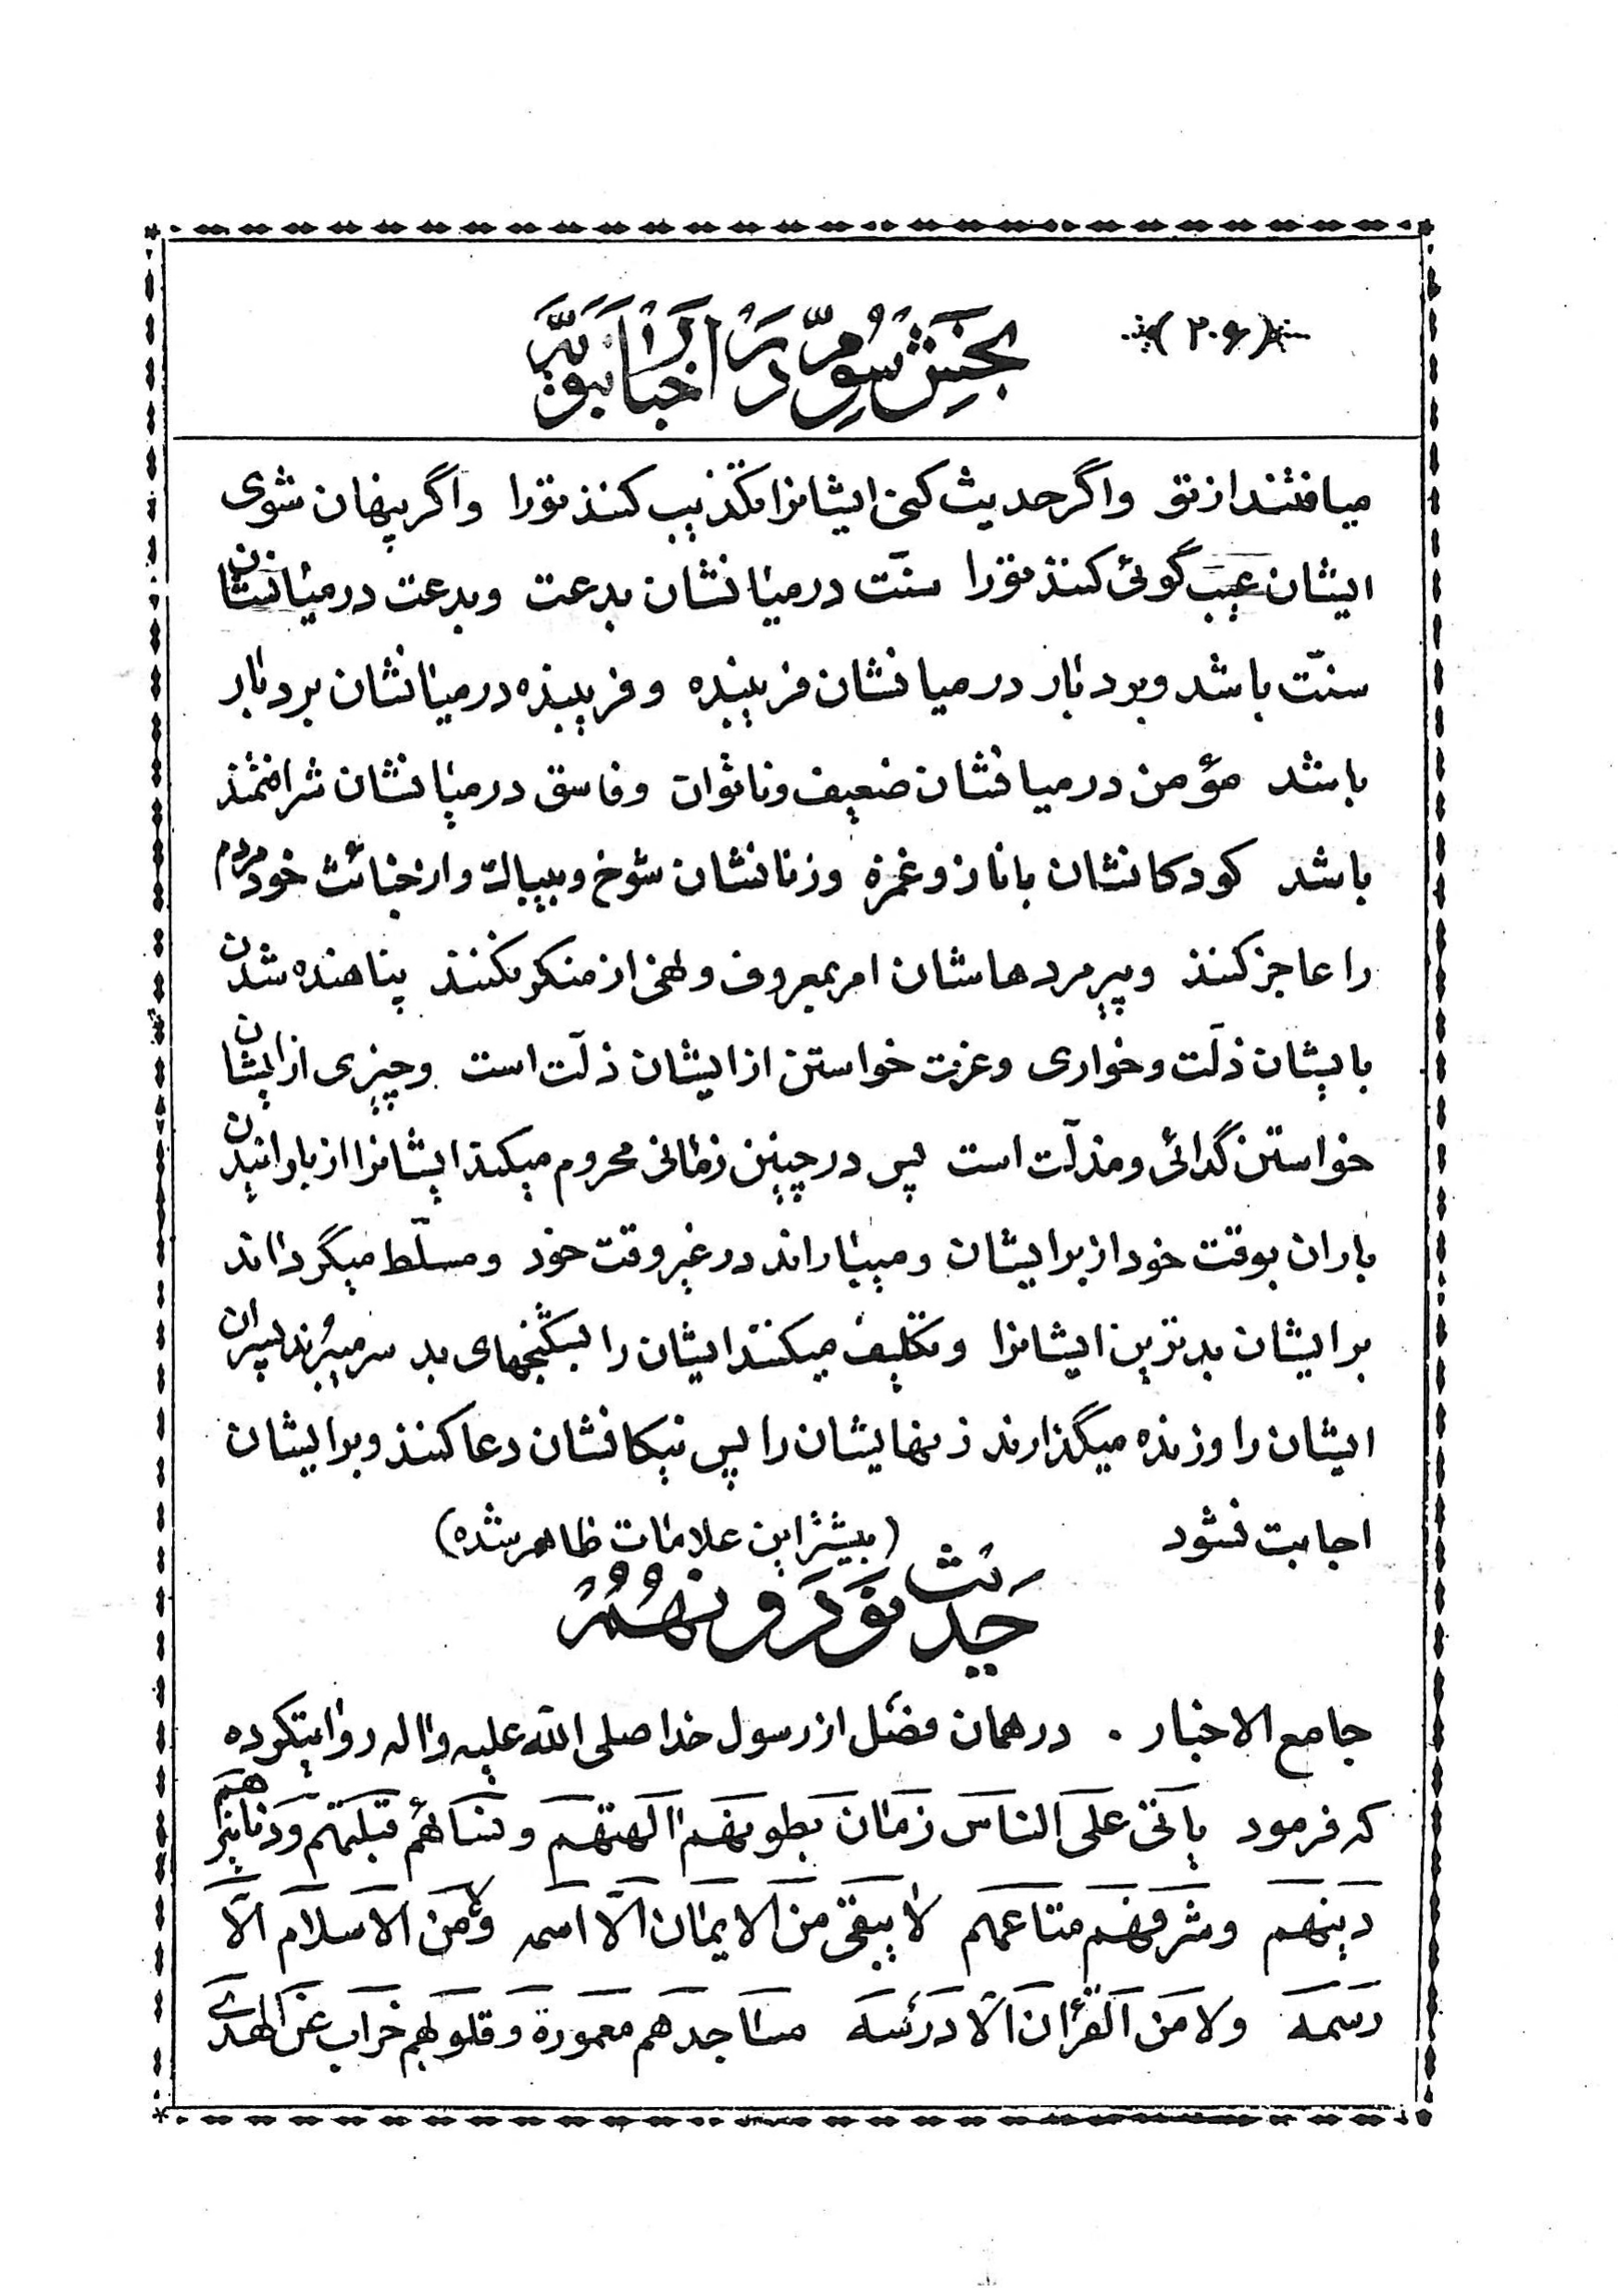 (۲۰۶)
بخش سوم در اخبار نبویه
میافتند از تو واگر حدیث کنی ایشانرا تکذیب کنند تورا واگر پنهان شوی
ایشان عیب گوئی کنند تورا سنّت در میانشان بدعت وبدعت در میانشان
سنّت باشد وبردبار در میانشان فریبنده وفریبنده در میانشان بردبار
باشد مؤمن در میانشان ضعیف وناتوان وفاسق در میانشان شرافتمند
باشد کودکانشان باناز وغمزه وزنانشان شوخ وبیباک واز خباثت خود مردم
را عاجز کنند وپیرمردهاشان امر بمعروف ونهی از منکر نکنند پناهنده شدن
بایشان ذلّت وخواری وعزت خواستن از ایشان ذلّت است وچیزی از ایشان
خواستن گدائی ومذلّت است پس در چنین زمانی محروم میکند ایشانرا از بارانیدن
باران بوقت خود از برایشان ومیباراند در غیر وقت خود ومسلّط میگرداند
برایشان بدترین ایشانرا وتکلیف میکنند ایشان را بشکنجهای بد سر میبُرند پسران
ایشان را وزنده میگذارند زنهایشان را پس نیکانشان دعا کنند وبرایشان
اجابت نشود (بیشتر این علامات ظاهر شده)
حدیث نود و نهم
جامع الاخبار . در همان فصل از رسول خدا صلی الله علیه واله روایتکرده
که فرمود یاتی علی الناس زمان بطونهم الهتهم ونساؤهم قبلتهم ودنانیرهم
دینهم وشرفهم متاعهم لا یبقی من الایمان الّا اسمه ولا من الاسلام الّا
رسمه ولا من القرءان الّا درسه مساجدهم معمورة وقلوبهم خراب عن الهدی